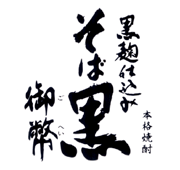 黒麹仕込み
本格焼酎
そば黒
御幣
ごへい